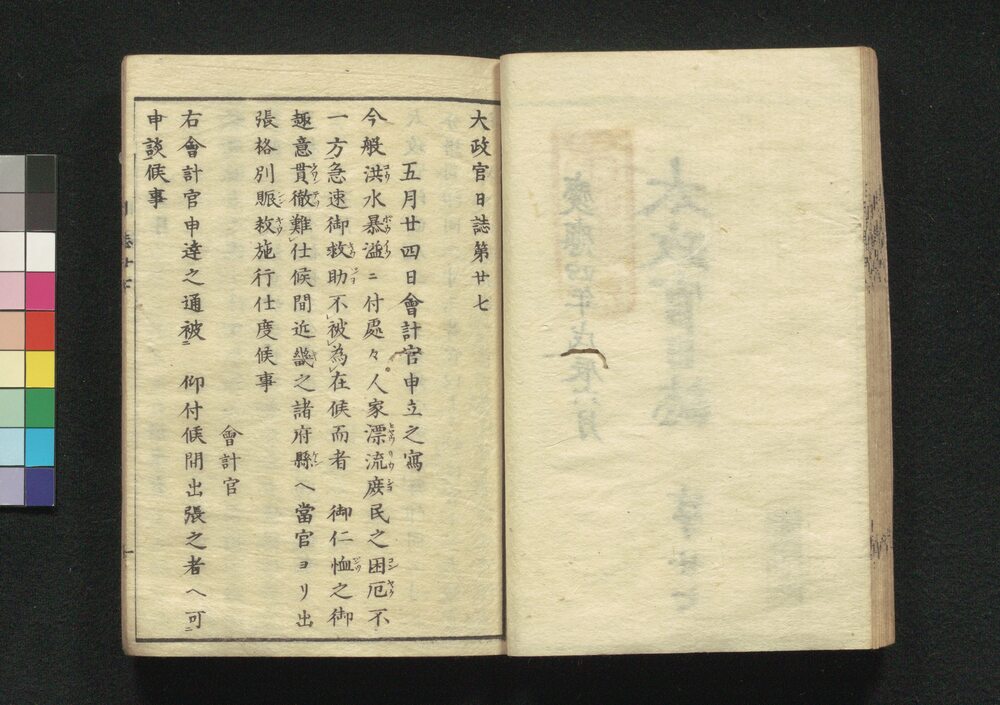 大政官日誌第廿七
五月廿四日會計官申立之寫
今般洪水暴溢ニ付處々人家漂流庻民之困厄不
一方急速御救助不被為在候而者　御仁恤之御
趣意貫徹難仕候間近畿之諸府縣へ當官ヨリ出
張格別賑救施行仕度候事
會計官
右會計官申達之通被　仰付候間出張之者へ可
申談候事